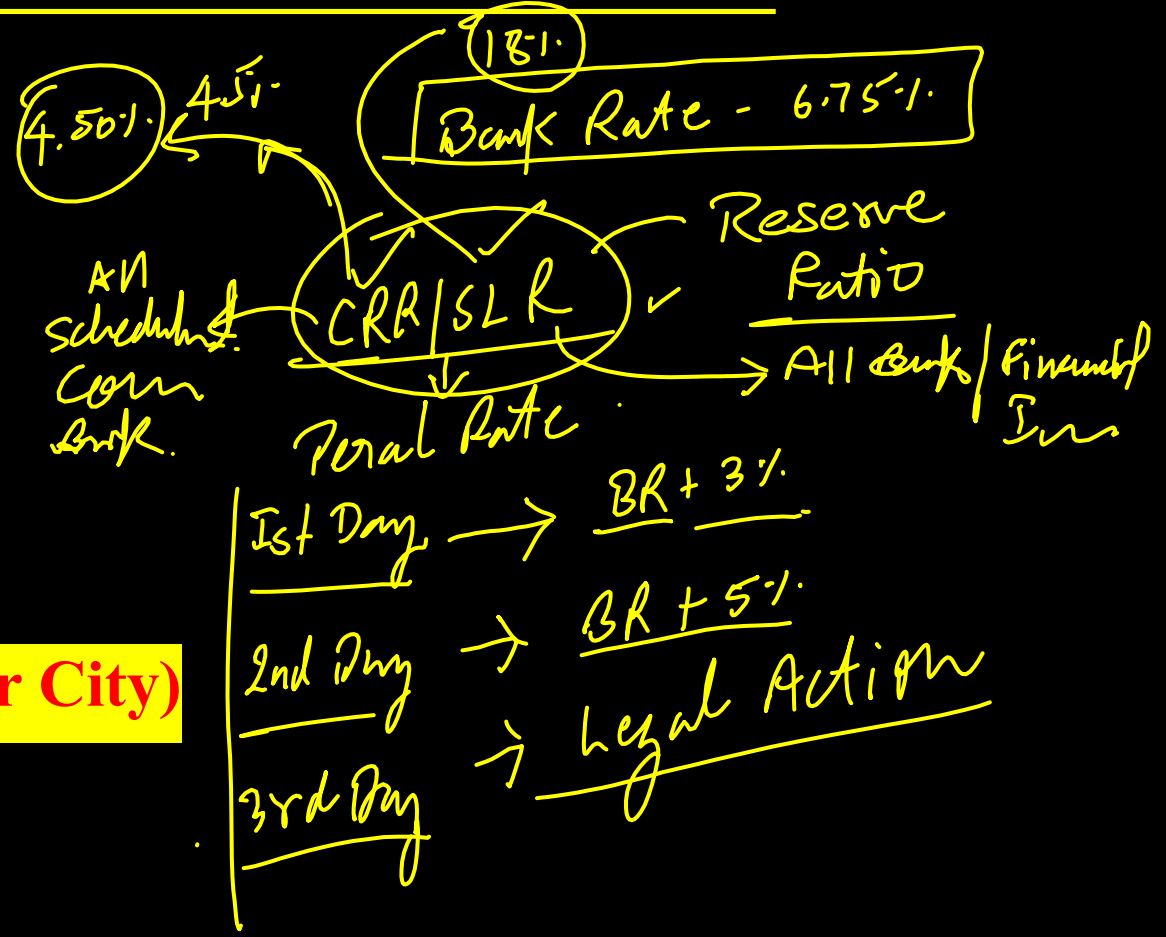 18%.
4.50%. 4.5%.
Bank Rate - 6.75%.
Reserve
Ratio
All
Scheduled.
Com
Bank.
CRR/SLR
All Bank/Financial
Ins
Penal Rate
Ist Day
BR + 3%.
2nd Day
BR + 5%.
r City)
3rd Day
Legal Action